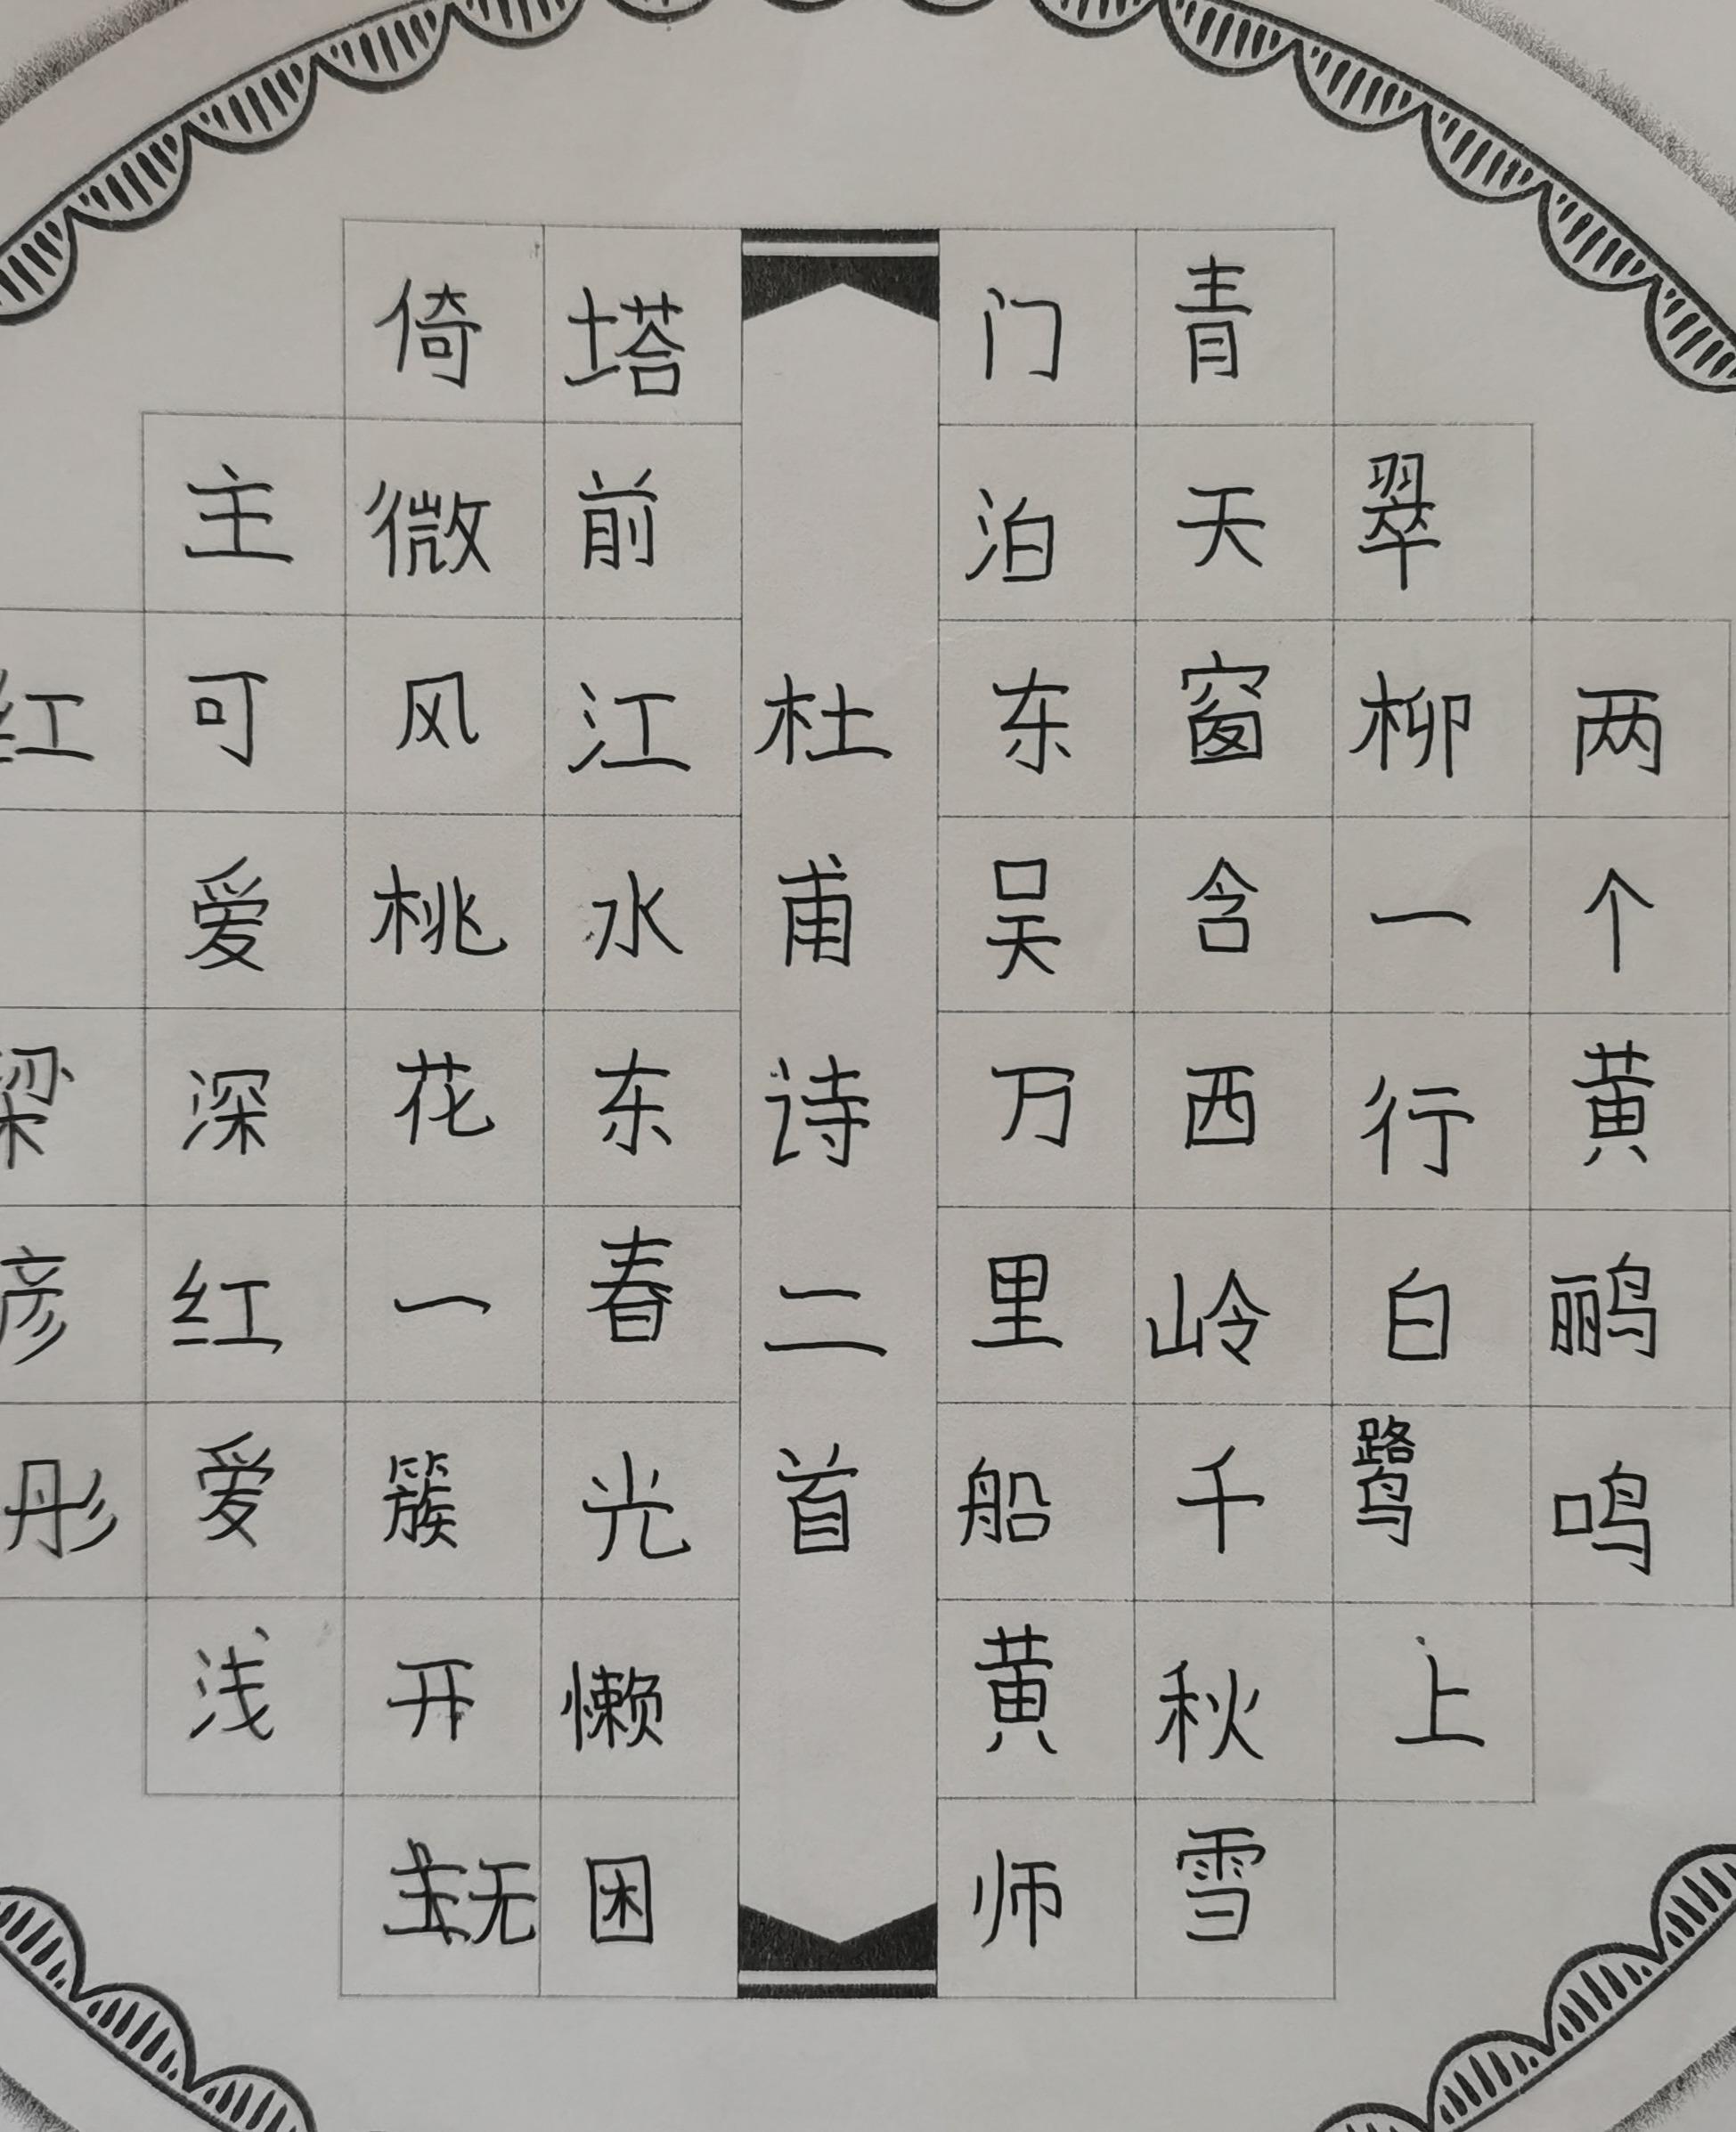 两个黄鹂鸣
翠柳一行白鹭上
青天窗含西岭千秋雪
门泊东吴万里船黄师
杜甫诗二首
塔前江水东春光懒困
倚微风桃花一簇开无
主可爱深红爱浅
红 梁彦彤